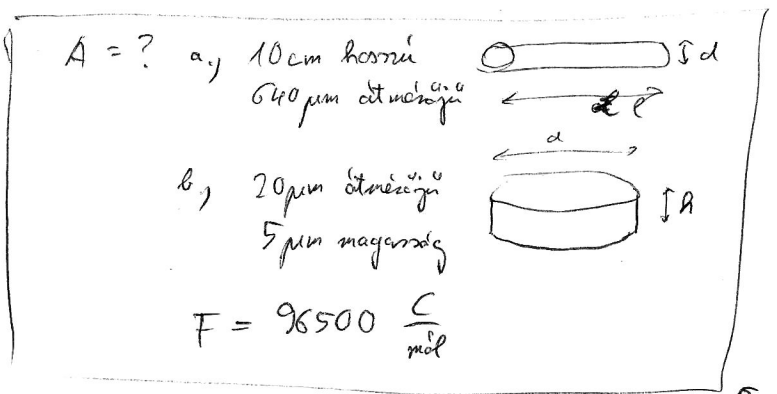 A = ? a., 10 cm hosszú
640 μm átmérőjű
d
l
b, 20 μm átmérőjű
d
5 μm magasság
h
F = 96500 C/mól